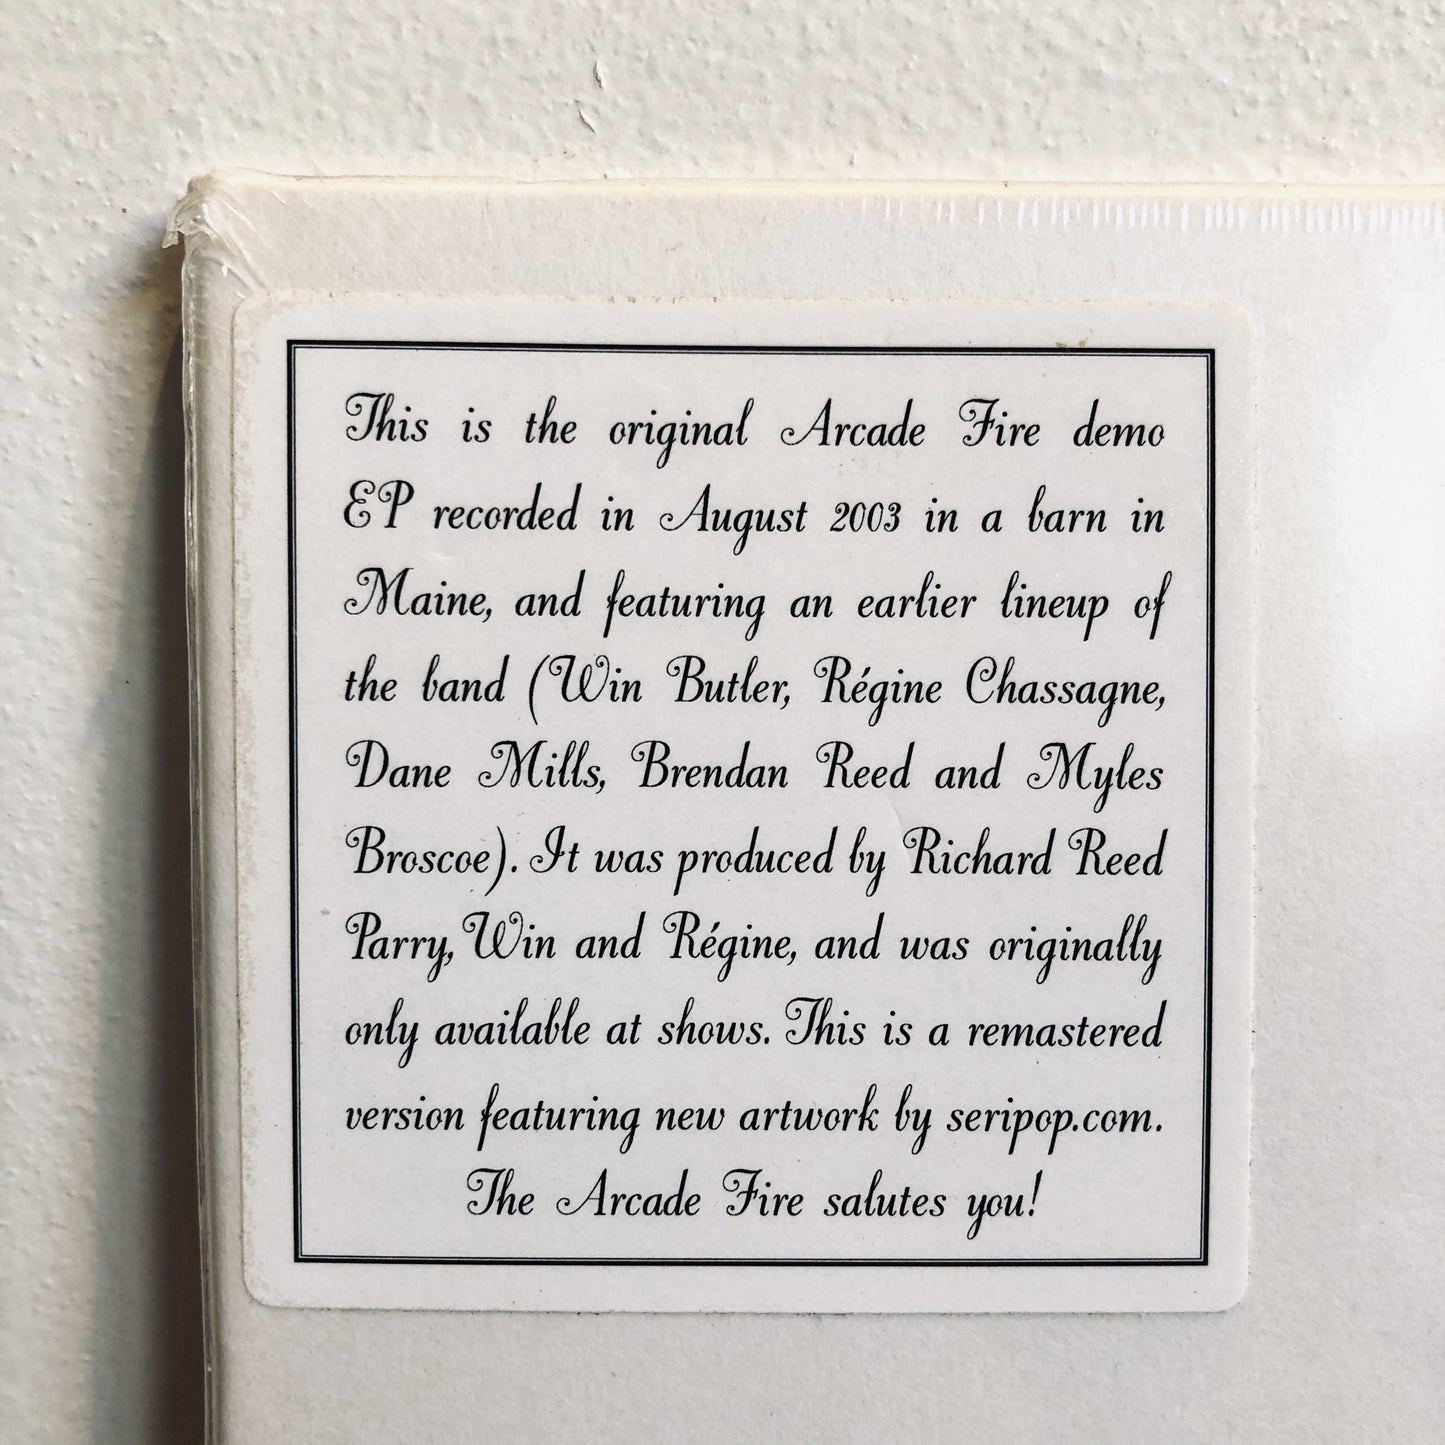 This is the original Arcade Fire demo
EP recorded in August 2003 in a barn in
Maine, and featuring an earlier lineup of
the band (Win Butler, Régine Chassagne,
Dane Mills, Brendan Reed and Myles
Broscoe). It was produced by Richard Reed
Parry, Win and Régine, and was originally
only available at shows. This is a remastered
version featuring new artwork by seripop.com.
The Arcade Fire salutes you!